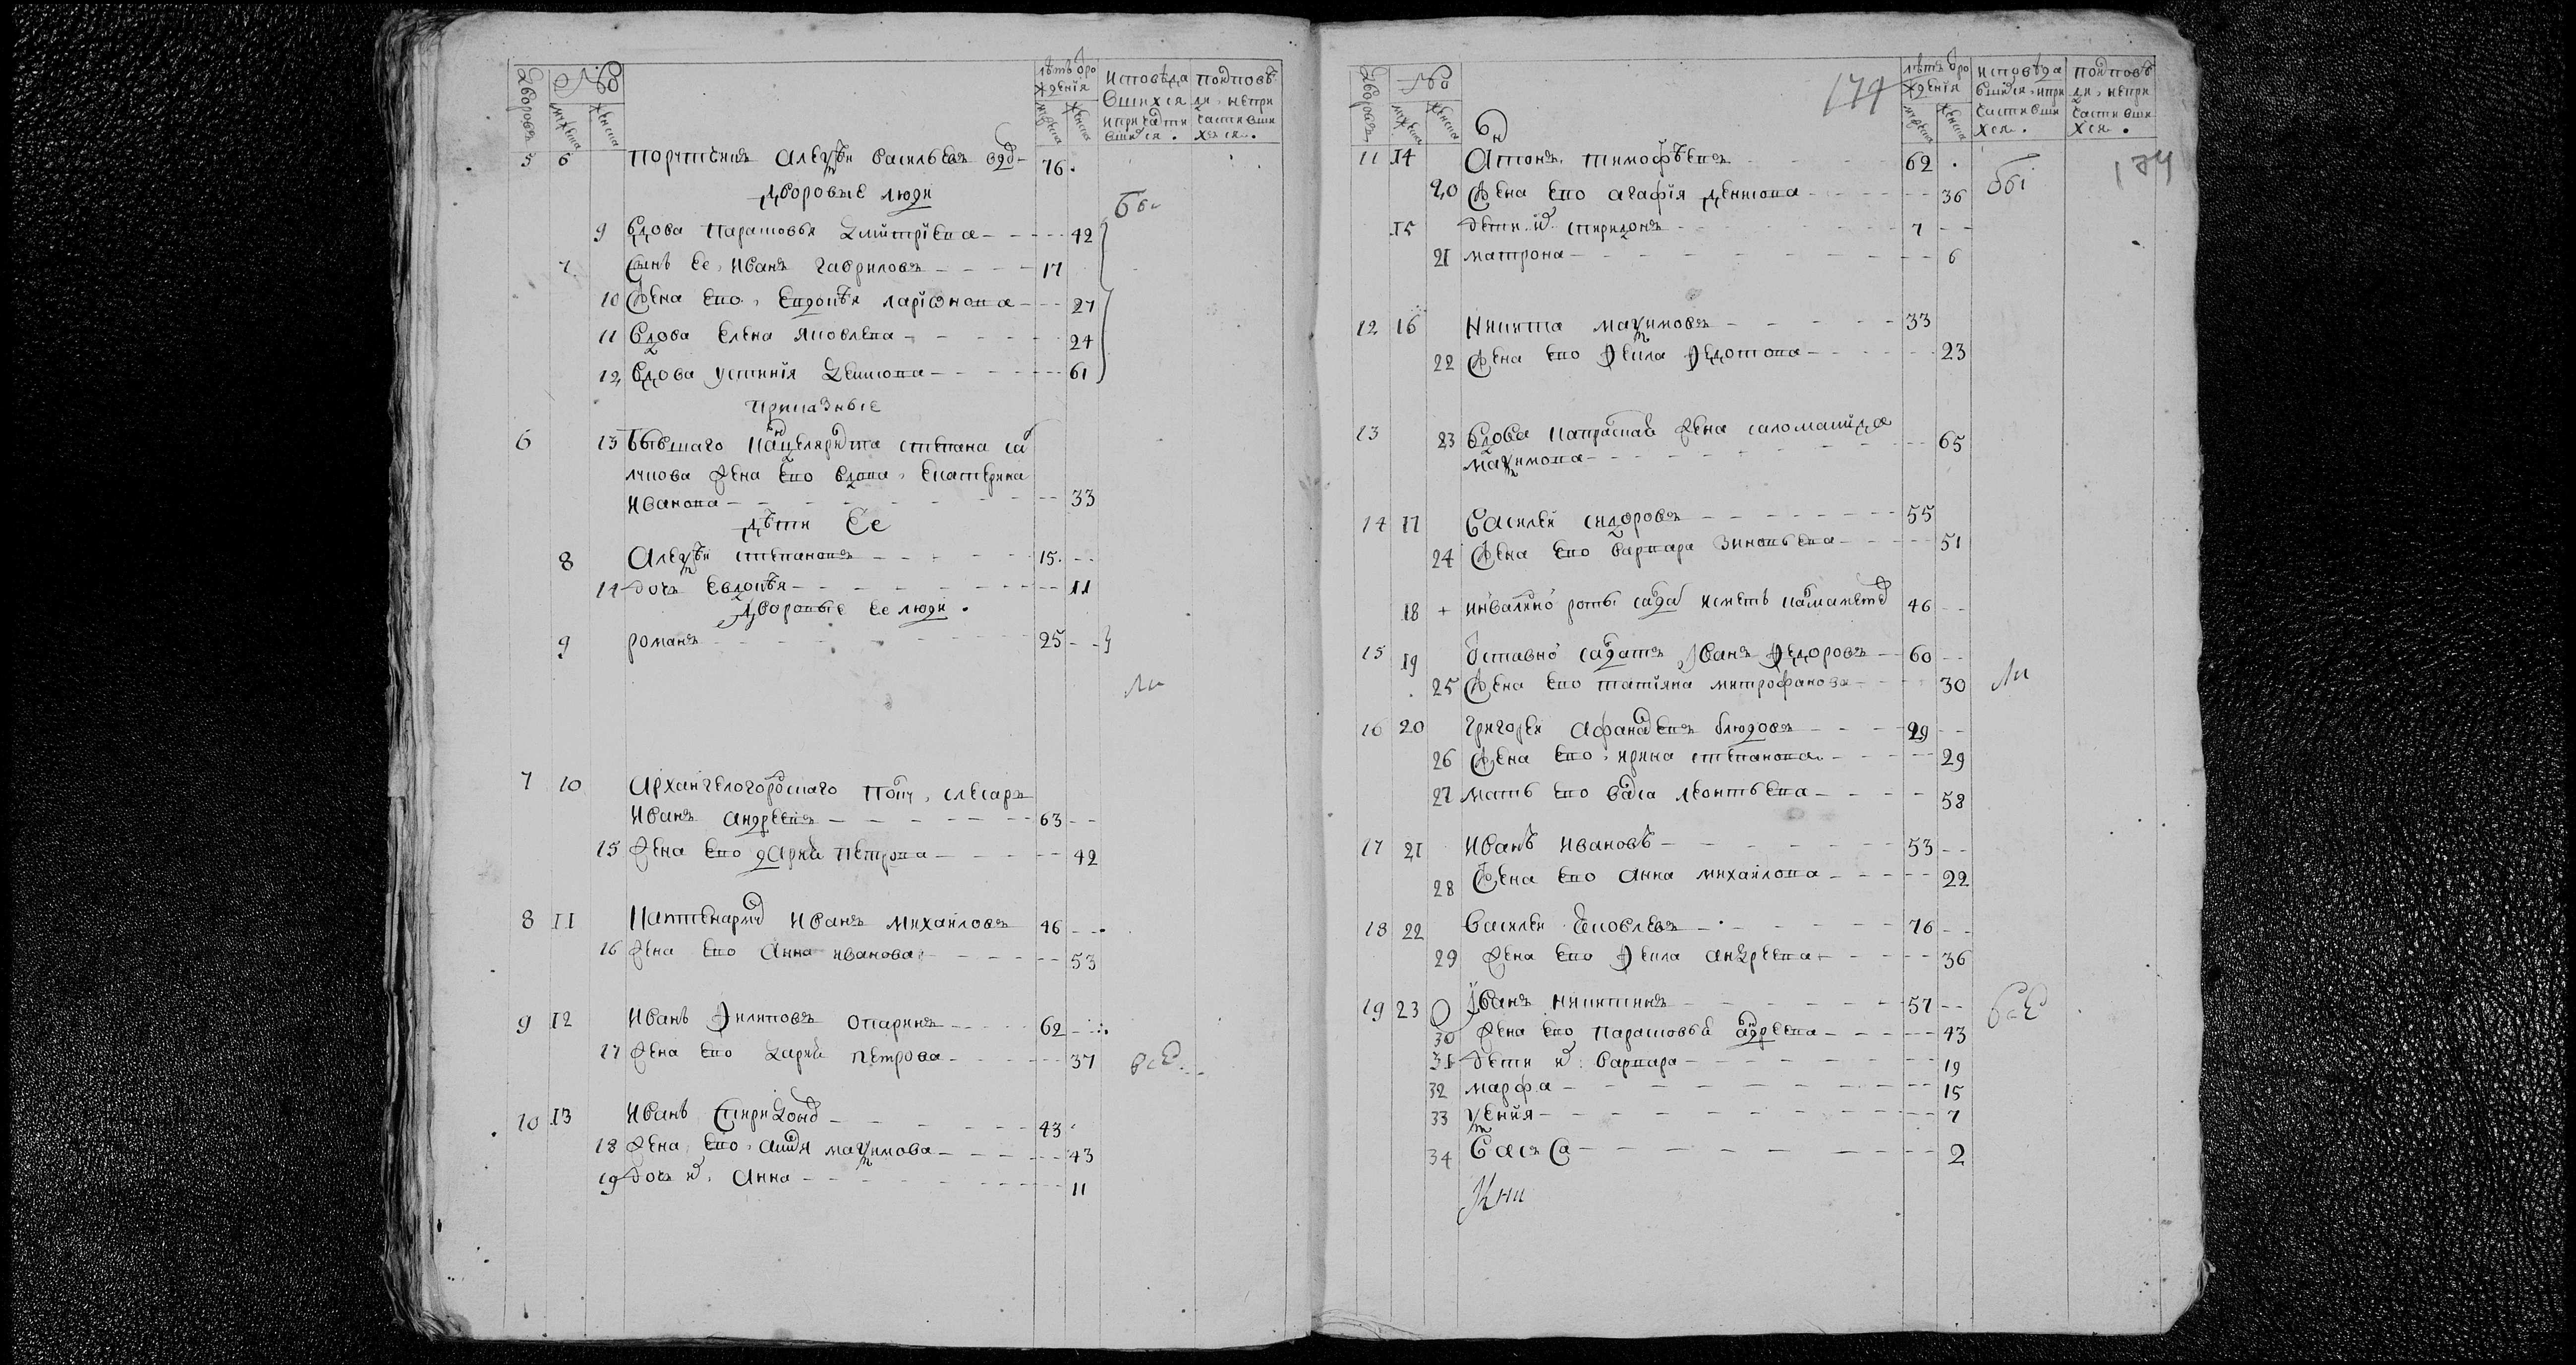 Дворовъ № мужска женска лѣтъ ѿро исповѣда подповѣ
жденія вшихся ди, непри
мужска женска ипричасти частивши
вшихся. хся.
5 6 Порутчикъ Алеѯѣй васильевъ 76
дворовые люди
бы
9 вдова парасковья дмитріева 42
7 Сынъ ее, Иванъ гавриловъ 17
10 Жена ево, евдокѣя ларіѡнова 27
11 вдова елена яковлева 24
12 вдова устинія 61
приказные
6 13 бывшаго канцеляриста степана са
лчкова жена ево вдова, екатерина
иванова 33
дѣти ее
8 Алеѯѣй степановъ 15
14 дочь евдокѣя 11
дворовые ее люди.
9 романъ 25
ли
7 10 Архангелогородскаго полку, слесарь
иванъ андреевъ 63
15 жена ево дарья петрова 42
8 11 Каптенармусъ иванъ михайловъ 46
16 жена ево анна иванова 53
9 12 Иванъ филиповъ опаринъ 62
17 жена ево дарья петрова 37
все
10 13 Иванъ Спиридоновъ 43
18 жена ево, маѯимова 43
19 дочь их, анна 11
179
Дворовъ № мужска женска лѣтъ ѿро исповѣда подповѣ
жденія вшихся, ипри ди, непри
мужска женска частивши частивши
хся. хся.
174
11 14 Антонъ тимофѣевъ 62
бы
20 Жена ево агафія 36
15 дети их спиридонъ 7
21 матрона 6
12 16 Никита маѯимовъ 33
22 Жена ево фекла федотова 23
13 23 вдова капралская жена саломанида
маѯимова 65
14 17 Василей сидоровъ 55
24 Жена ево варвара зиновьева 51
18 + инвалидной роты салдатъ 46
15 19 ѿставной салдатъ Иванъ федоровъ 60
25 Жена ево татіяна митрофанова 30
ли
16 20 Григорей афанасьевъ блюдовъ 29
26 Жена ево, ирина степанова 29
27 мать ево васса леонтьева 58
17 21 Иванъ ивановъ 53
28 Жена ево анна михайлова 22
18 22 Василей яковлевъ 76
29 жена ево фекла андреева 36
19 23 Иванъ никитинъ 57
все
30 жена ево парасковья андреева 43
31 дети их варвара 19
32 марфа 15
33 ѯенія 7
34 васса 2
Кни